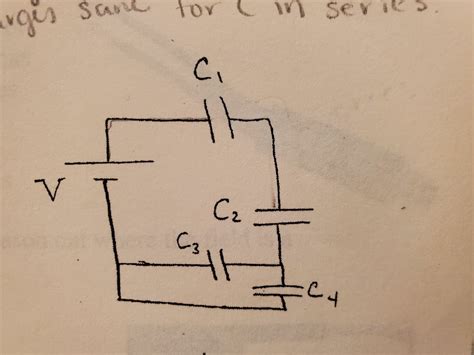 same for C in series.
C1
V
C2
C3
C4